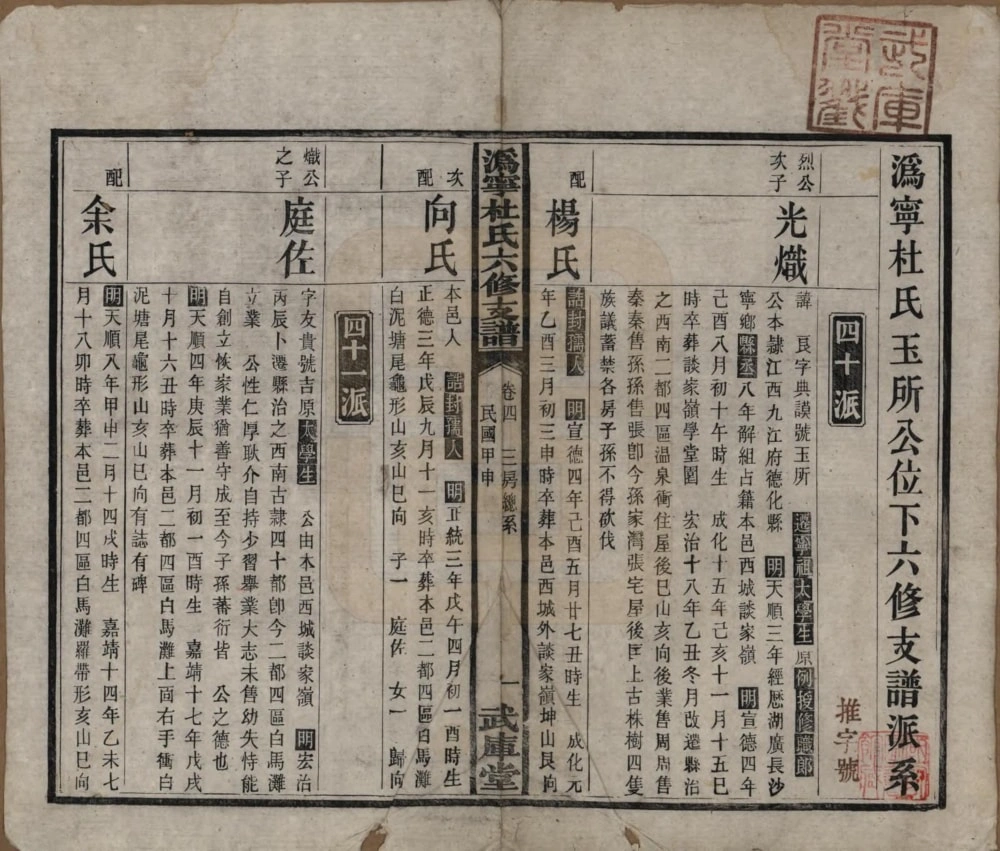 武庫堂戳
溈寧杜氏玉所公位下六修支譜派系
推字號
四十派
烈公次子
光熾
諱 艮字典謨號玉所 遷寧祖太學生原例授修職郎
公本隸江西九江府德化縣 明天順三年經歷湖廣長沙
寧鄉縣丞八年解組占籍本邑西城談家嶺 明宣德四年
己酉八月初十午時生 成化十五年己亥十一月十五巳
時卒葬談家嶺學堂園 宏治十八年乙丑冬月改遷縣治
之西南一二都四區溫泉衝住屋後巳山亥向後業售周周售
秦秦售孫孫售張卽今孫家灣張宅屋後匡上古株樹四隻
族議蓄禁各房子孫不得砍伐
配
楊氏
誥封孺人 明宣德四年己酉五月廿七丑時生 成化元
年乙酉三月初三申時卒葬本邑西城外談家嶺坤山艮向
溈寧杜氏六修支譜
卷四 三房總系
民國甲申
一 武庫堂
次配
向氏
本邑人 誥封孺人 明正統三年戊午四月初一酉時生
正德三年戊辰九月十一亥時卒葬本邑二都四區白馬灘
白泥塘尾龜形山亥山巳向 子一 庭佐 女一 歸向
四十一派
熾公之子
庭佐
字友貴號吉原太學生 公由本邑西城談家嶺 明宏治
丙辰卜遷縣治之西南古隸四十都卽今二都四區白馬灘
立業 公性仁厚耿介自持少習舉業大志未售幼失恃能
自創立恢家業猶善守成至今子孫蕃衍皆 公之德也
明天順四年庚辰十一月初一酉時生 嘉靖十七年戊戌
十月十六丑時卒葬本邑二都四區白馬灘上面右手衝白
泥塘尾龜形山亥山巳向有誌有碑
配
余氏
明天順八年甲申二月十四戌時生 嘉靖十四年乙未七
月十八卯時卒葬本邑二都四區白馬灘羅帶形亥山巳向